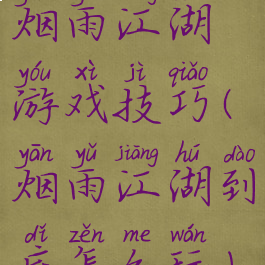 烟雨江湖
yóu xì jì qiǎo
游戏技巧(
yān yǔ jiāng hú dào
烟雨江湖到
dǐ zěn me wán
底怎么玩)